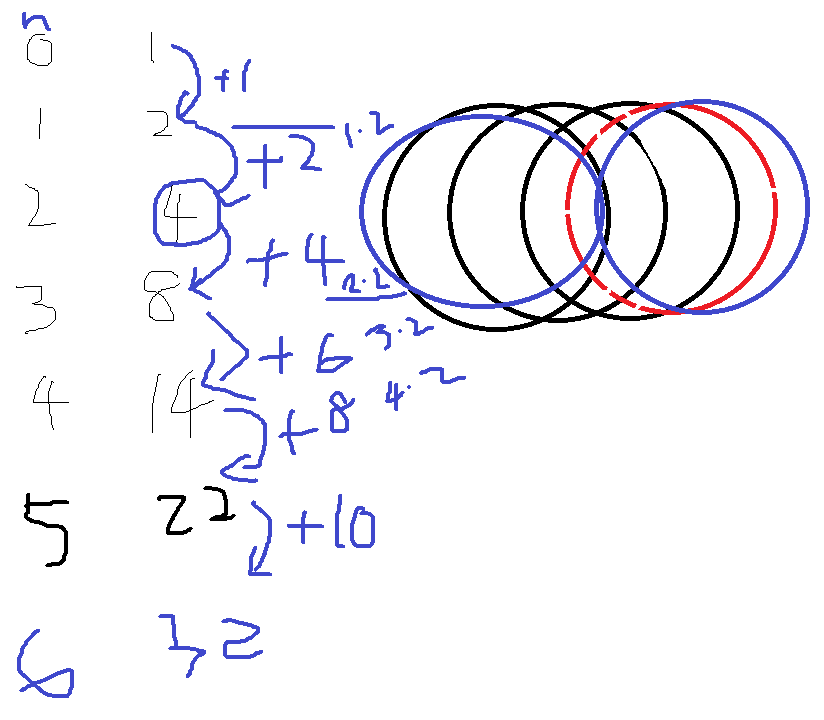 n
0 1
+1
1 2
+2 1·2
2 4
+4 2·2
3 8
+6 3·2
4 14
+8 4·2
5 22
+10
6 32